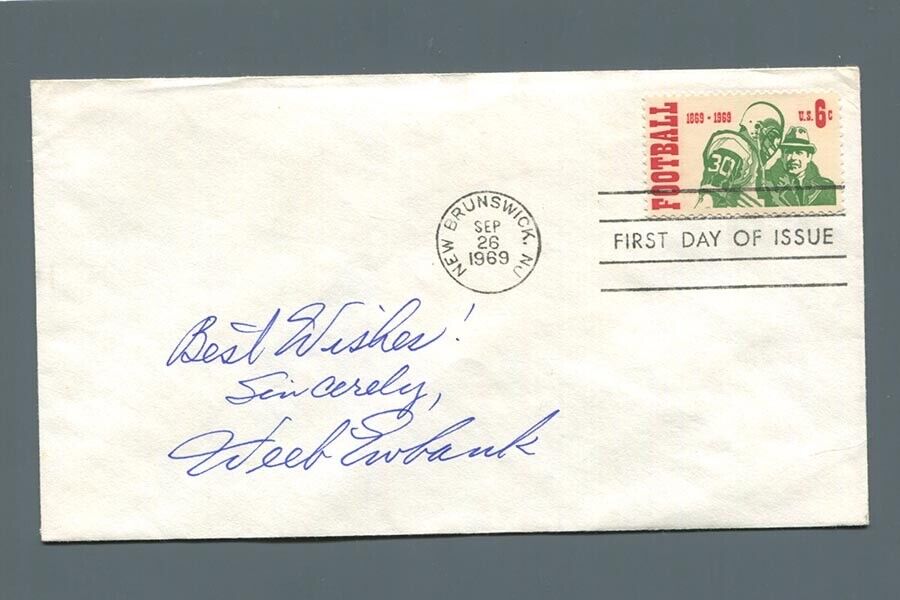 FOOTBALL
1869 - 1969
U.S. 6c
30
NEW BRUNSWICK, NJ
SEP
26
1969
FIRST DAY OF ISSUE
Best Wishes!
Sincerely,
Weeb Ewbank